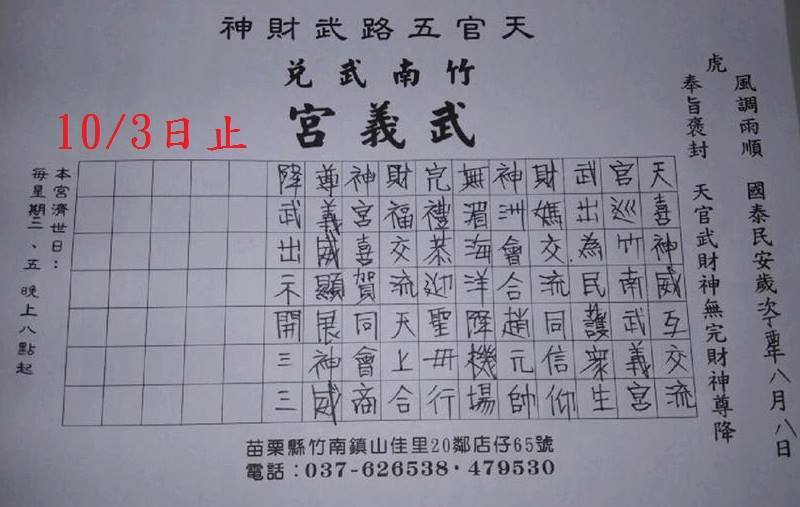 天官五路武財神
竹南武兌
武義宮
10/3日止
風調雨順 國泰民安歲次丁酉年八月八日
虎
奉旨褒封 天官武財神無完財神尊降
天喜神威互交流
官巡竹南武義宮
武出為民護眾生
財媽交流同信仰
神洲會合趙元帥
無湄海洋降機場
完禮恭迎聖毌行
財福交流天上合
神宮喜賀同會商
尊義威顯展神威
降武出示開三三
本宮濟世日：
每星期二、五 晚上八點起
苗栗縣竹南鎮山佳里20鄰店仔65號
電話：037-626538·479530